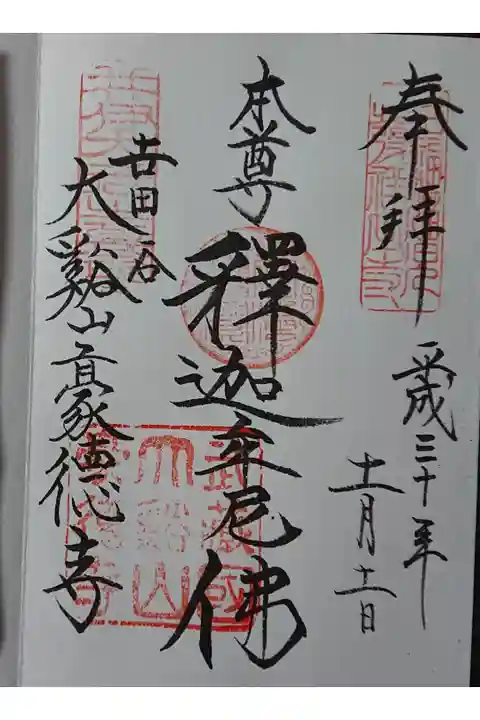 奉拝
平成三十年
十一月十一日
本尊
釋迦牟尼佛
世田谷
大谿山豪徳寺
武蔵國
大谿山
豪徳寺